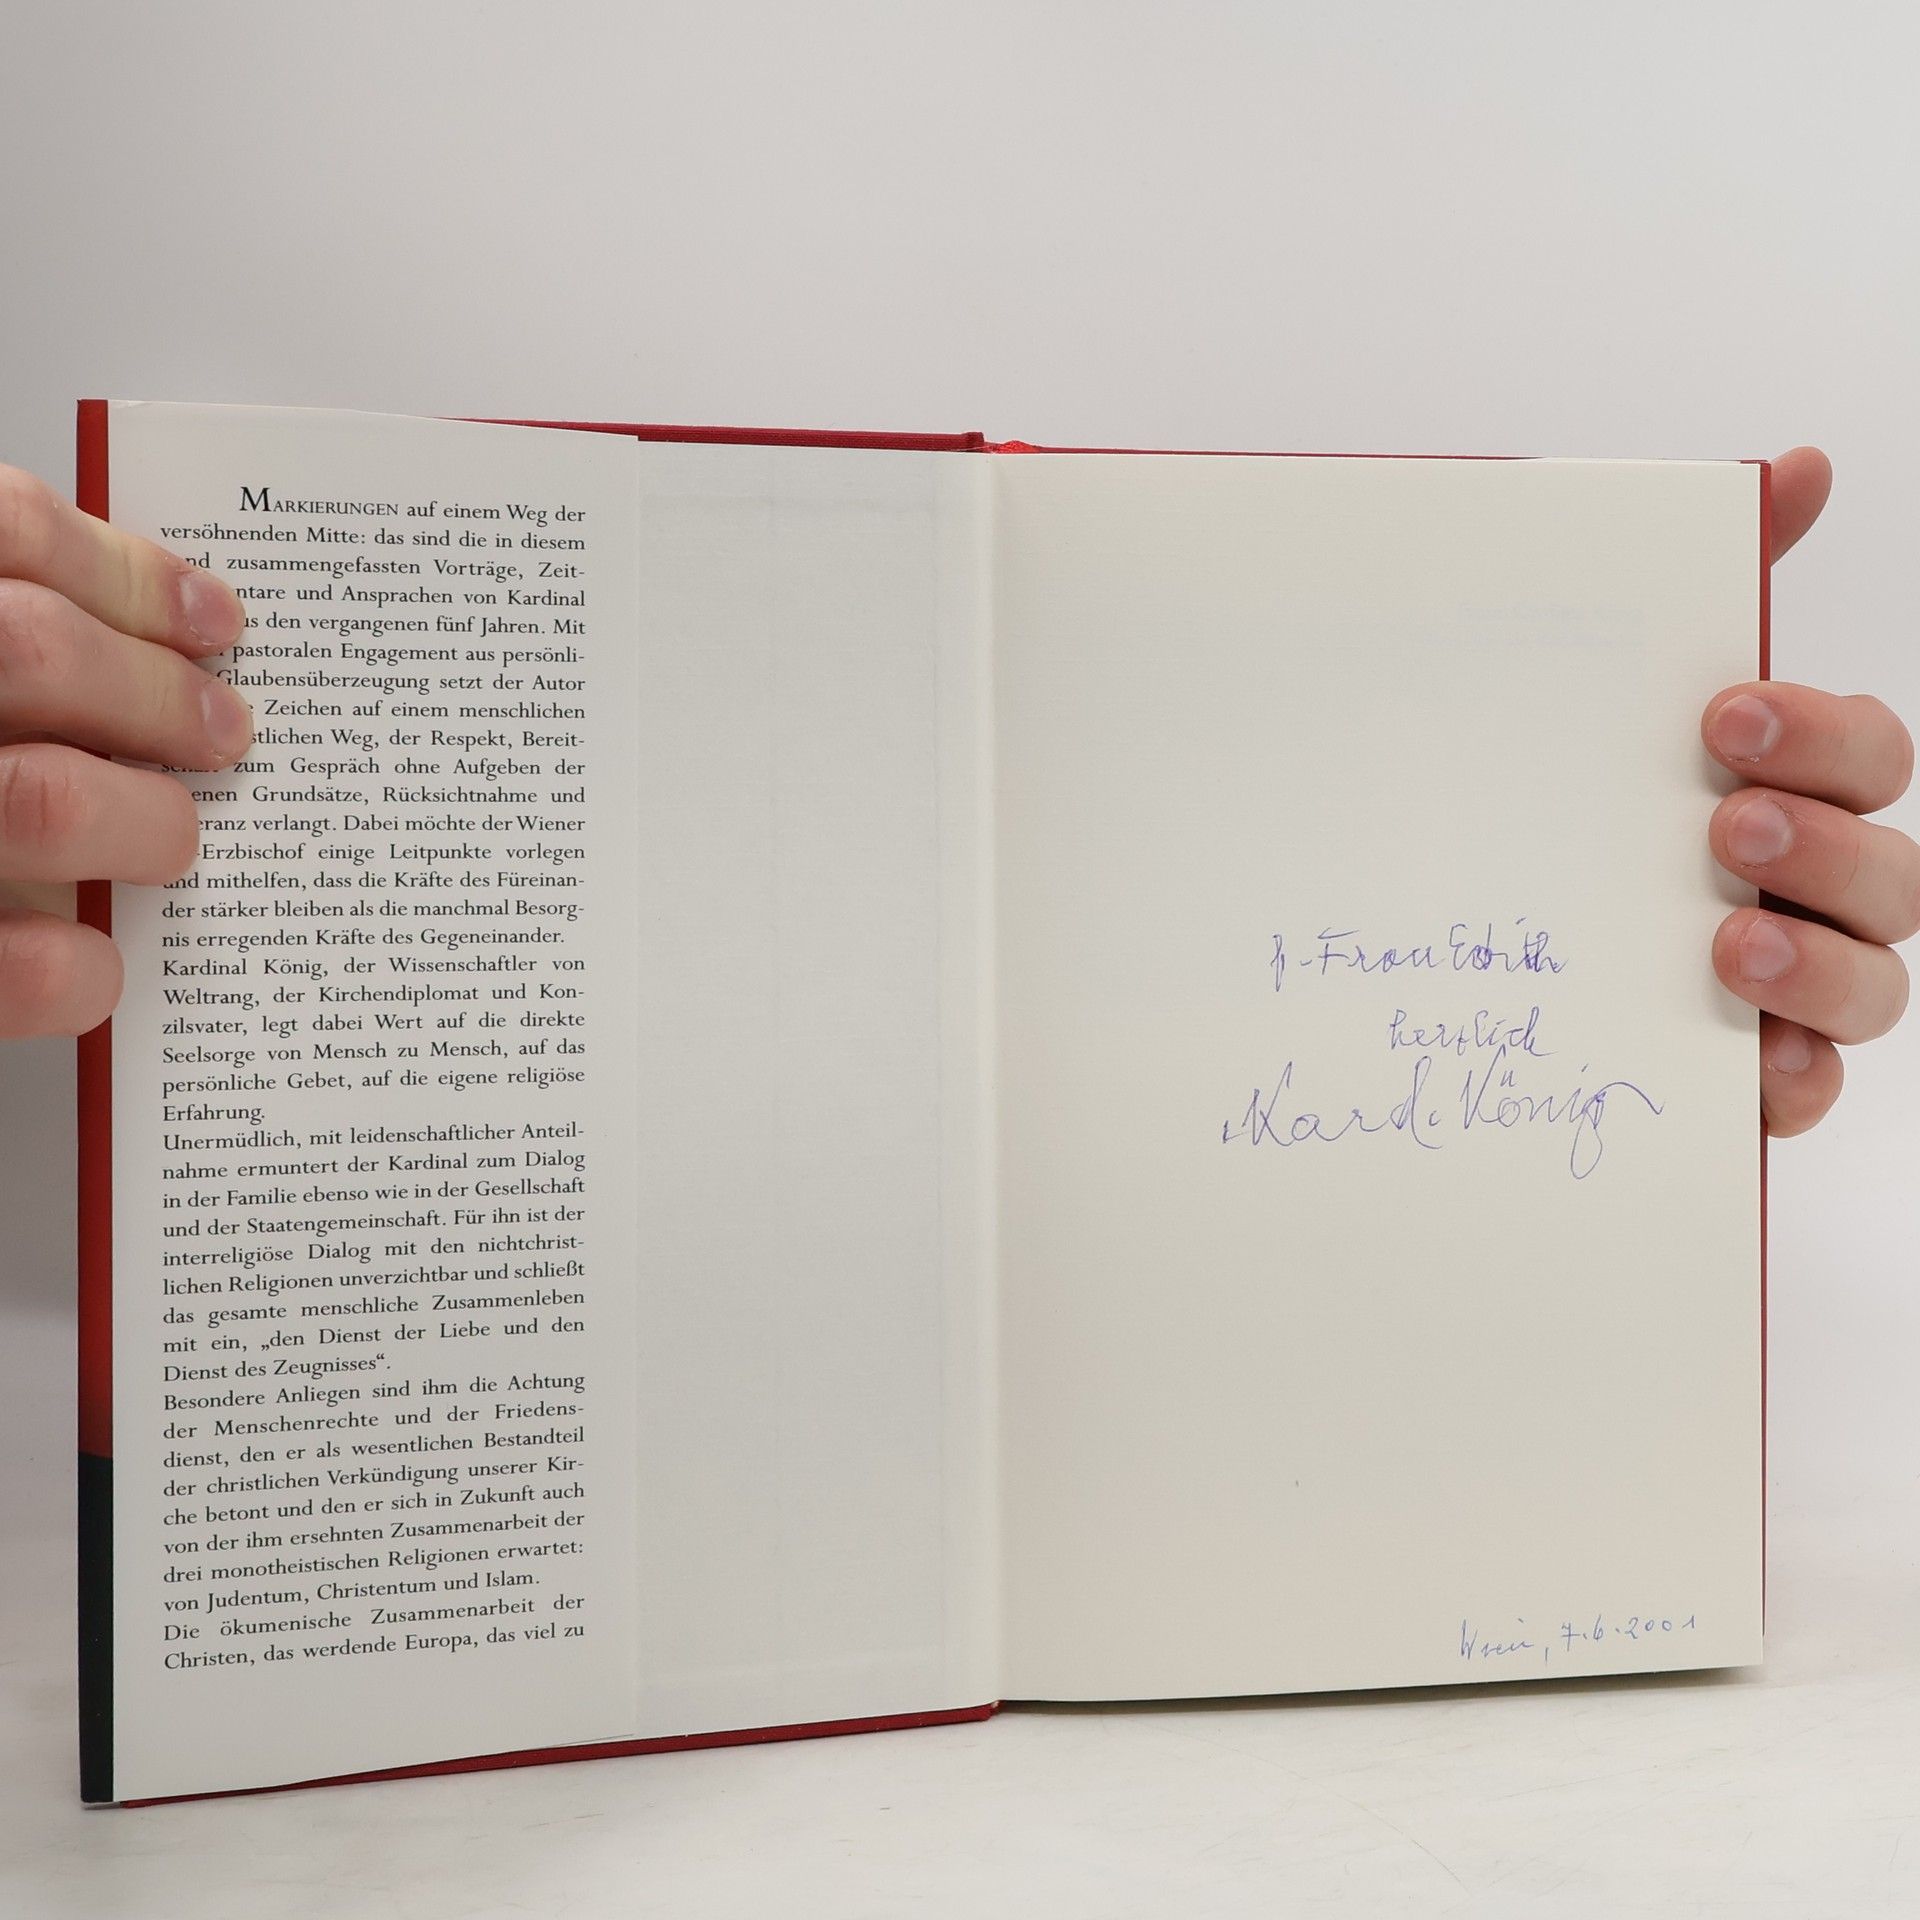 MARKIERUNGEN auf einem Weg der
versöhnenden Mitte: das sind die in diesem
nd zusammengefassten Vorträge, Zeit-
ntare und Ansprachen von Kardinal
us den vergangenen fünf Jahren. Mit
pastoralen Engagement aus persönli-
Glaubensüberzeugung setzt der Autor
Zeichen auf einem menschlichen
stlichen Weg, der Respekt, Bereit-
schaft zum Gespräch ohne Aufgeben der
enen Grundsätze, Rücksichtnahme und
eranz verlangt. Dabei möchte der Wiener
-Erzbischof einige Leitpunkte vorlegen
und mithelfen, dass die Kräfte des Füreinan-
der stärker bleiben als die manchmal Besorg-
nis erregenden Kräfte des Gegeneinander.
Kardinal König, der Wissenschaftler von
Weltrang, der Kirchendiplomat und Kon-
zilsvater, legt dabei Wert auf die direkte
Seelsorge von Mensch zu Mensch, auf das
persönliche Gebet, auf die eigene religiöse
Erfahrung.
Unermüdlich, mit leidenschaftlicher Anteil-
nahme ermuntert der Kardinal zum Dialog
in der Familie ebenso wie in der Gesellschaft
und der Staatengemeinschaft. Für ihn ist der
interreligiöse Dialog mit den nichtchrist-
lichen Religionen unverzichtbar und schließt
das gesamte menschliche Zusammenleben
mit ein, „den Dienst der Liebe und den
Dienst des Zeugnisses“.
Besondere Anliegen sind ihm die Achtung
der Menschenrechte und der Friedens-
dienst, den er als wesentlichen Bestandteil
der christlichen Verkündigung unserer Kir-
che betont und den er sich in Zukunft auch
von der ihm ersehnten Zusammenarbeit der
drei monotheistischen Religionen erwartet:
von Judentum, Christentum und Islam.
Die ökumenische Zusammenarbeit der
Christen, das werdende Europa, das viel zu
Frau Edith
herzlich
Kard. König
Wien, 7.6.2001